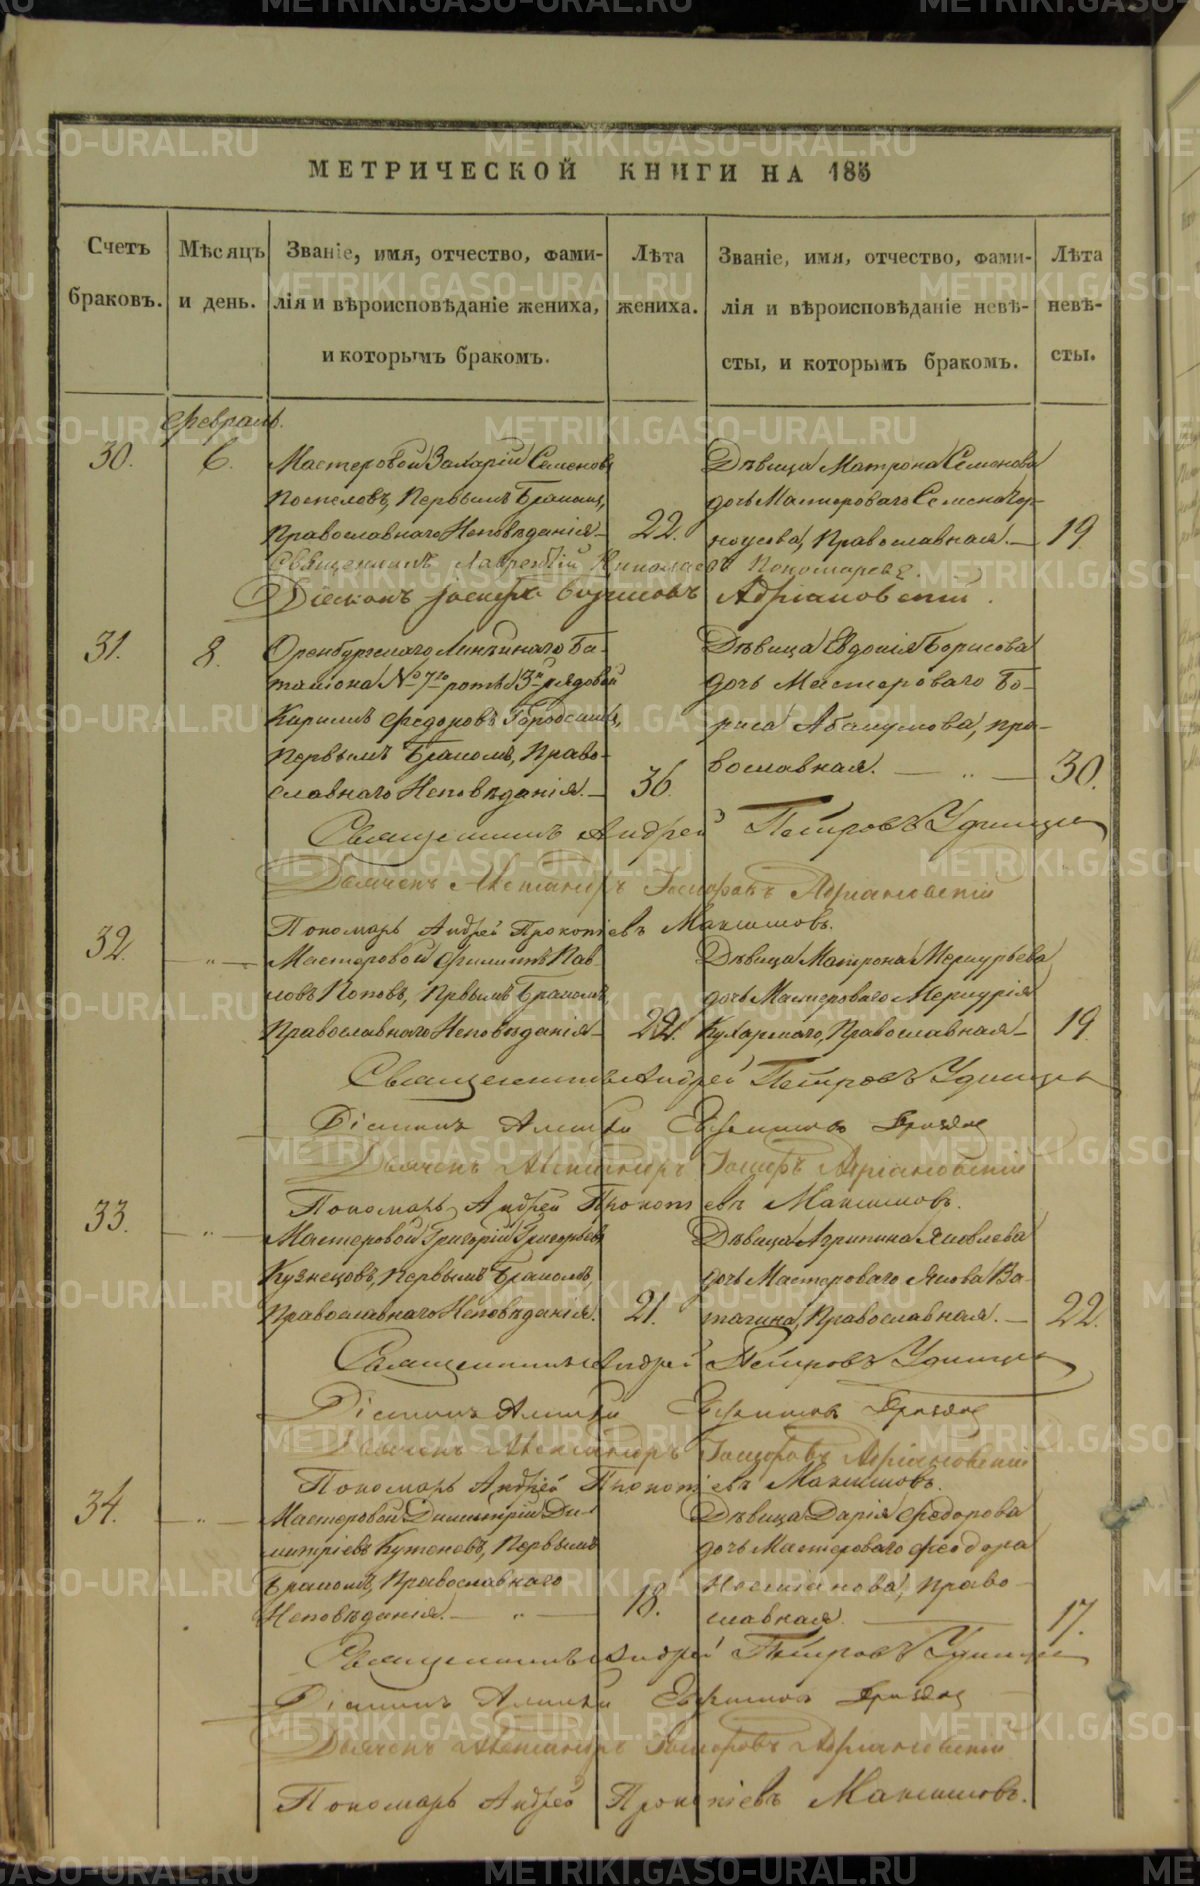 МЕТРИЧЕСКОЙ КНИГИ НА 185
Счетъ браковъ.
Мѣсяцъ и день.
Званіе, имя, отчество, фами-
лія и вѣроисповѣданіе жениха,
и которымъ бракомъ.
Лѣта
жениха.
Званіе, имя, отчество, фами-
лія и вѣроисповѣданіе невѣ-
сты, и которымъ бракомъ.
Лѣта
невѣ-
сты.
Февраль.
30.
6.
Мастеровой Захарій Семеновъ
Поспеловъ, Первымъ Бракомъ,
Православнаго Исповѣданія
22.
Дѣвица Матрона Семенова
дочь Мастероваго Семена Чер-
ноусова, Православная.
19.
Священникъ Лаврентій Николаевъ Пономаревъ.
Діаконъ Іосифъ Борисовъ Адріановскій.
31.
8.
Оренбургскаго Линѣйнаго Ба-
таліона № 7го роты 3й рядовой
Кириллъ Федоровъ
Первымъ Бракомъ, Право-
славнаго Исповѣданія.
36.
Дѣвица Евдокія Борисова
дочь Мастероваго Бо-
риса Абакумова, пра-
вославная.
30.
Священникъ Андрей Петровъ Удинцевъ
Дьячекъ Александръ Адріановскій
Пономарь Андрей Прокопіевъ Максимовъ.
32.
Мастеровой Филиппъ Пав-
ловъ Поповъ, Првымъ Бракомъ,
Православнаго Исповѣданія
22.
Дѣвица Матрона Меркурьева
дочь Мастероваго Меркурія
Кухарскаго, Православная
19.
Священникъ Андрей Петровъ Удинцевъ
Діаконъ
Дьячекъ Александръ Адріановскій
Пономарь Андрей Прокопіевъ Максимовъ.
33.
Мастеровой Григорій Григорьевъ
Кузнецовъ, Первымъ Бракомъ,
Православнаго Исповѣданія.
21.
Дѣвица Агрипина Яковлева
дочь Мастероваго Якова Ва-
тагина, Православная.
22.
Священникъ Андрей Петровъ Удинцевъ
Діаконъ
Дьячекъ Александръ Адріановскій
Пономарь Андрей Прокопіевъ Максимовъ.
34.
Мастеровой Димитрій Ди-
митріевъ Первымъ
Бракомъ, Православнаго
Исповѣданія.
18.
Дѣвица Дарія Федорова
дочь Мастероваго Феодора
право-
славная.
17.
Священникъ Андрей Петровъ Удинцевъ
Діаконъ
Дьячекъ Александръ Адріановскій
Пономарь Андрей Прокопіевъ Максимовъ.
METRIKI.GASO-URAL.RU